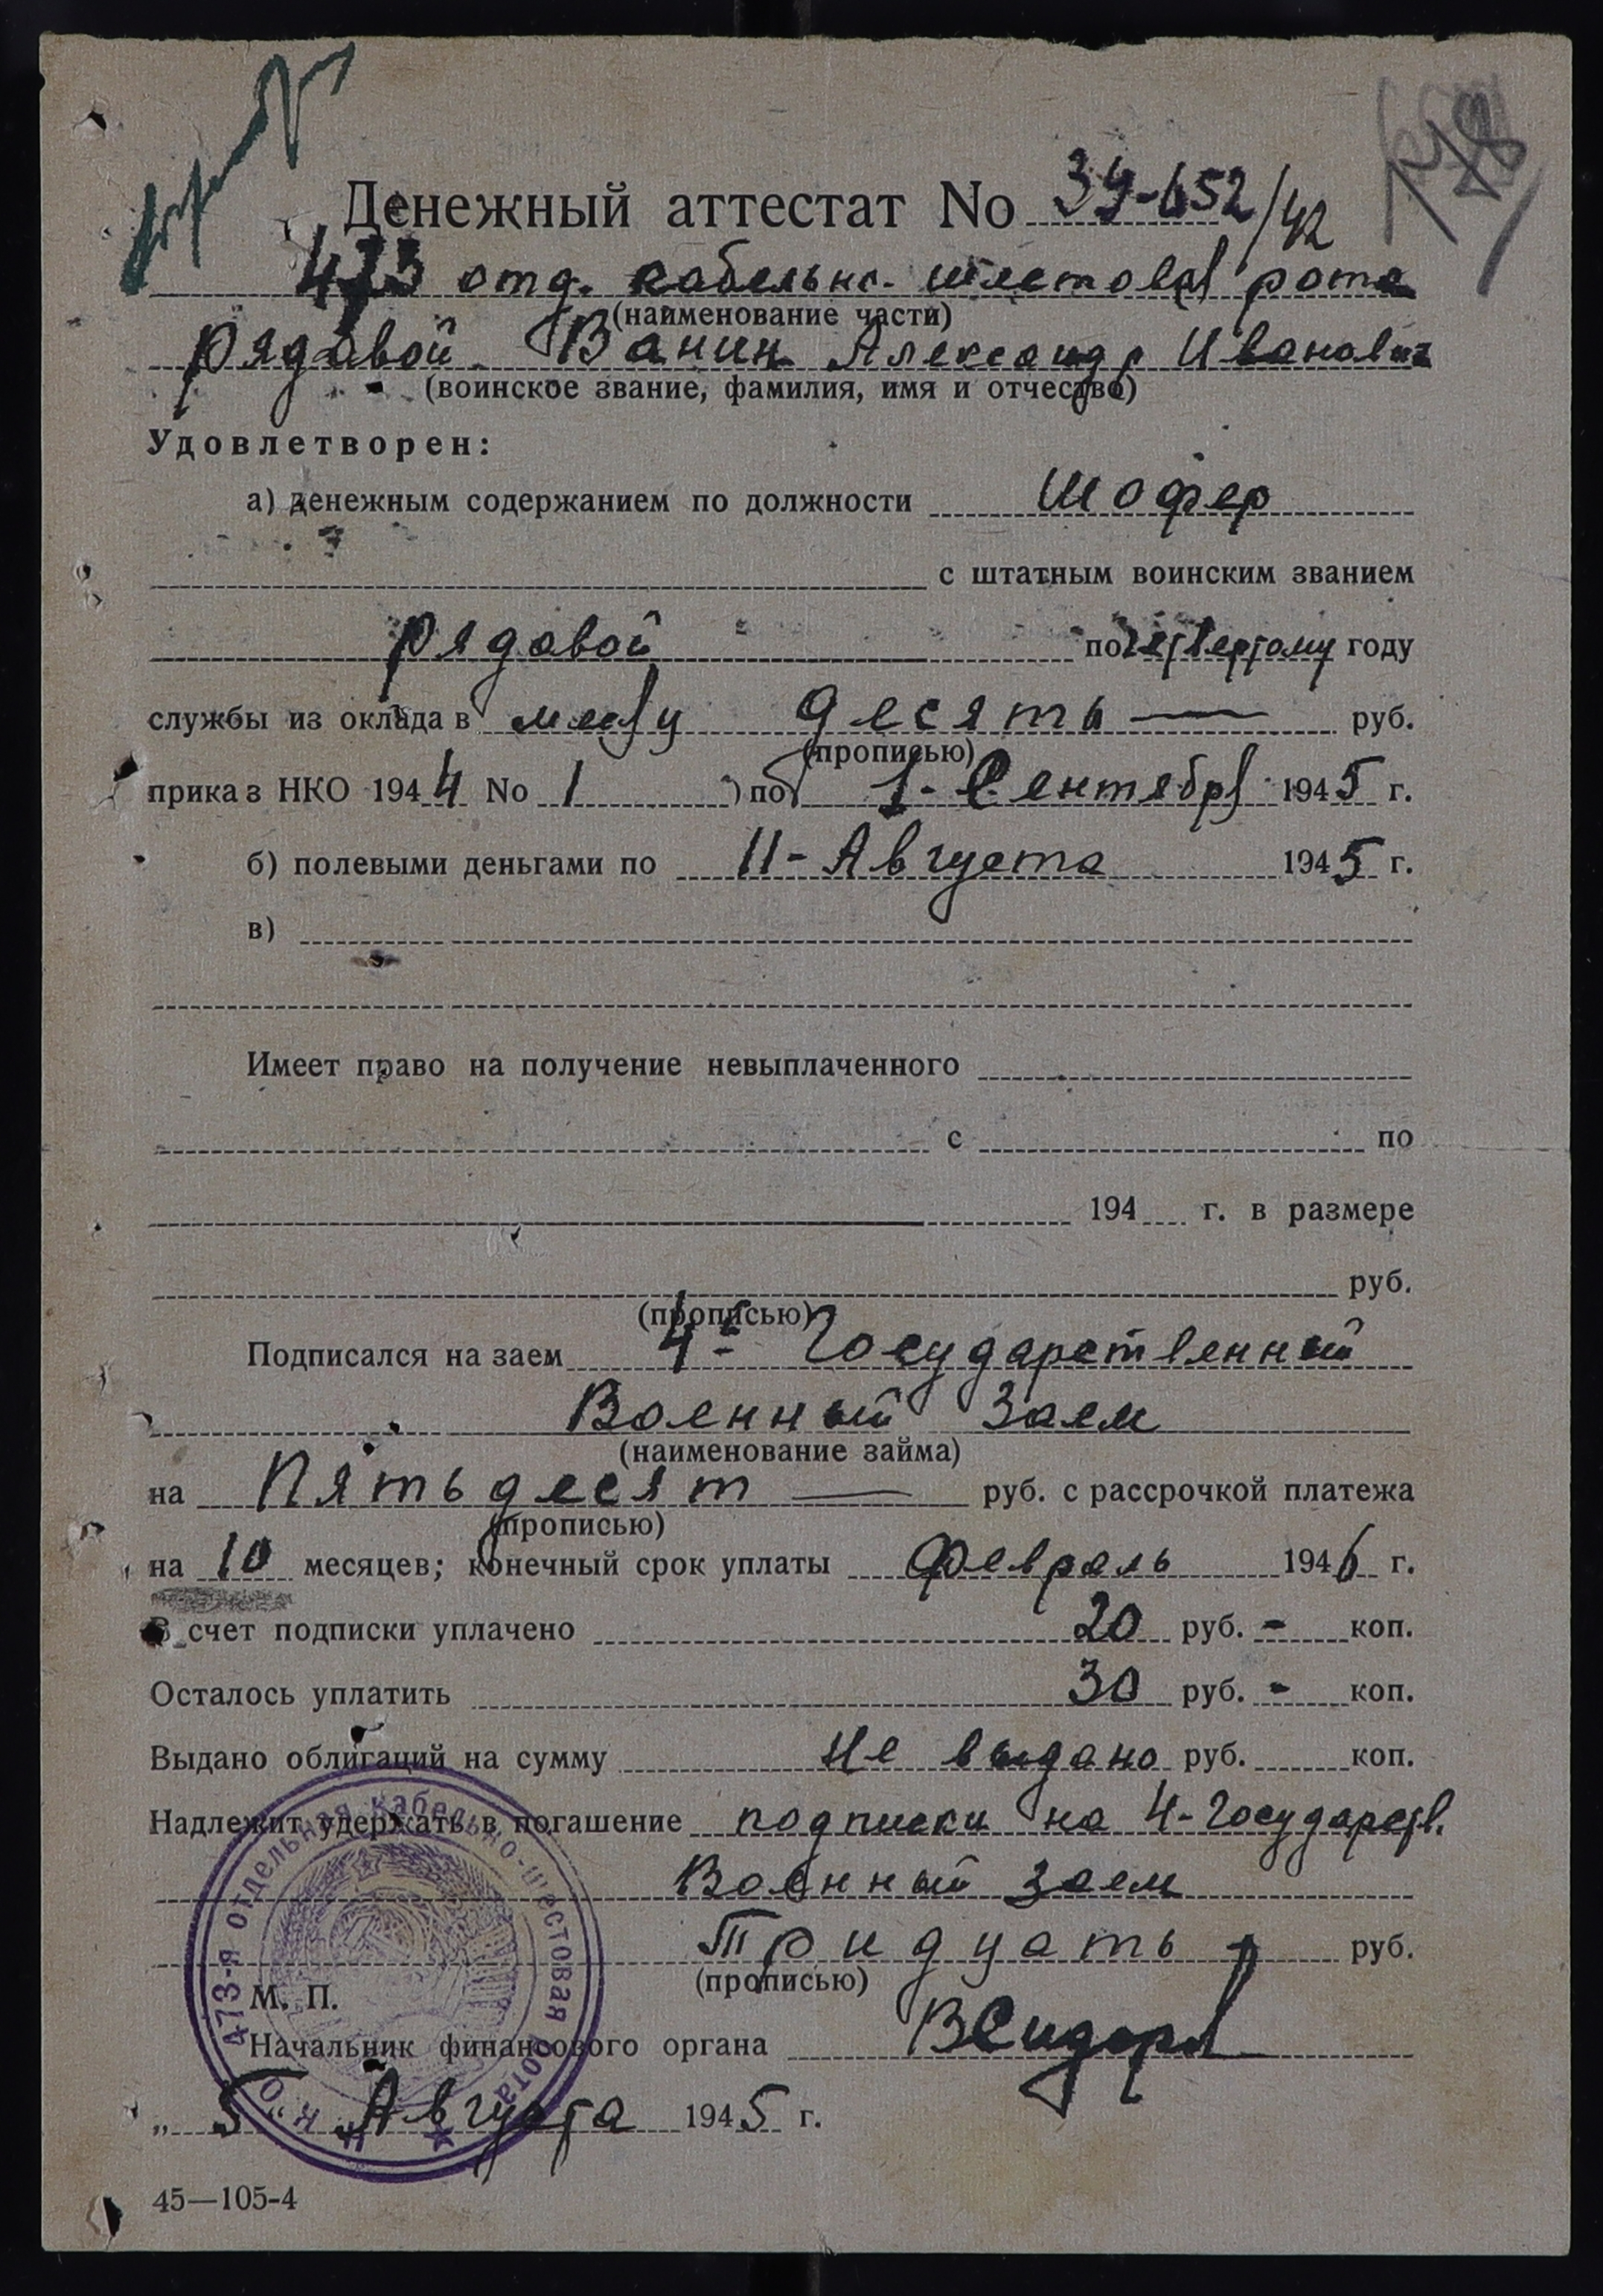 Денежный аттестат No 39-652/42
473 отд. кабельно-шестовая рота
(наименование части)
рядовой Ванин Александр Иванович
(воинское звание, фамилия, имя и отчество)
Удовлетворен:
а) денежным содержанием по должности шофер
с штатным воинским званием
рядовой по четвертому году
службы из оклада в месяц десять — руб.
(прописью)
приказ НКО 1944 No 1 ) по 1-Сентября 1945 г.
б) полевыми деньгами по 11-Августа 1945 г.
в)
Имеет право на получение невыплаченного
с по
194 г. в размере
руб.
(прописью)
Подписался на заем 4-й Государственный
Военный Заем
(наименование займа)
на Пятьдесят — руб. с рассрочкой платежа
(прописью)
на 10 месяцев; конечный срок уплаты февраль 1946 г.
В счет подписки уплачено 20 руб. - коп.
Осталось уплатить 30 руб. - коп.
Выдано облигаций на сумму Не выдано руб. коп.
Надлежит удержать в погашение подписки на 4-Государств.
Военный заем
Тридцать - руб.
(прописью)
М. П.
Начальник финансового органа ВСидоров
„ 5 " Августа 1945 г.
473-я отдельная кабельно-шестовая рота
Н К О
45—105-4